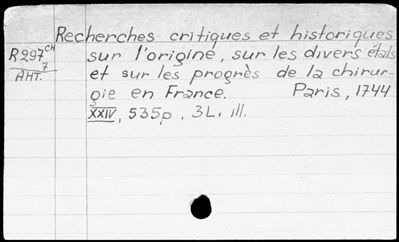 Recherches critiques et historiques
R297CH7 sur l'origine, sur les divers états
AHT. et sur les progrès de la chirur-
gie en France. Paris, 1744
XXIV, 535p, 3L. ill.